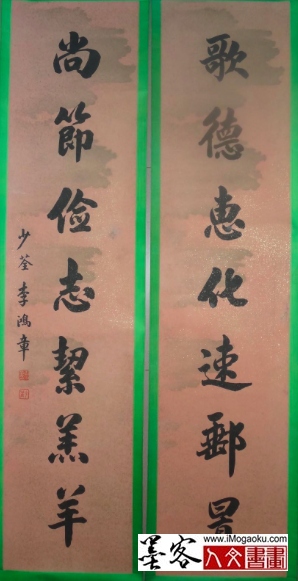 歌德惠化速郵
尚節儉志絜羔羊
少荃李鴻章
www.iMogaoku.com
墨客人文書畫